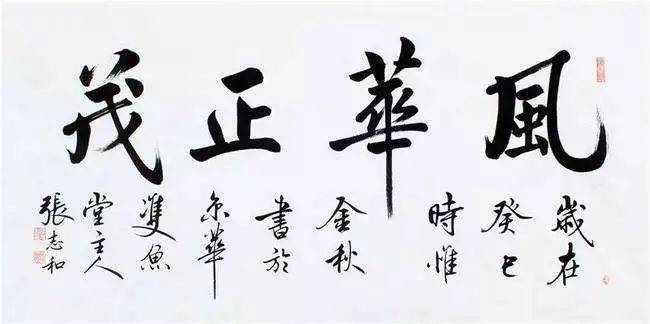 風華正茂
歲在
癸巳
時惟
金秋
書於
京華
雙魚
堂主人
張志和